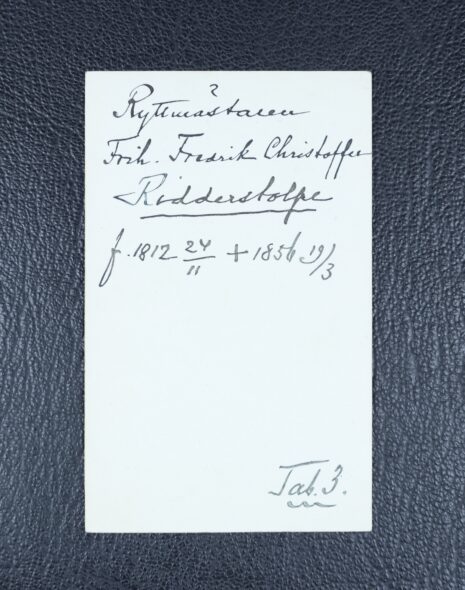 Ryttmästaren
Frih. Fredrik Christoffer
Ridderstolpe
f. 1812 24/11 + 1856 19/3
Tab. 3.